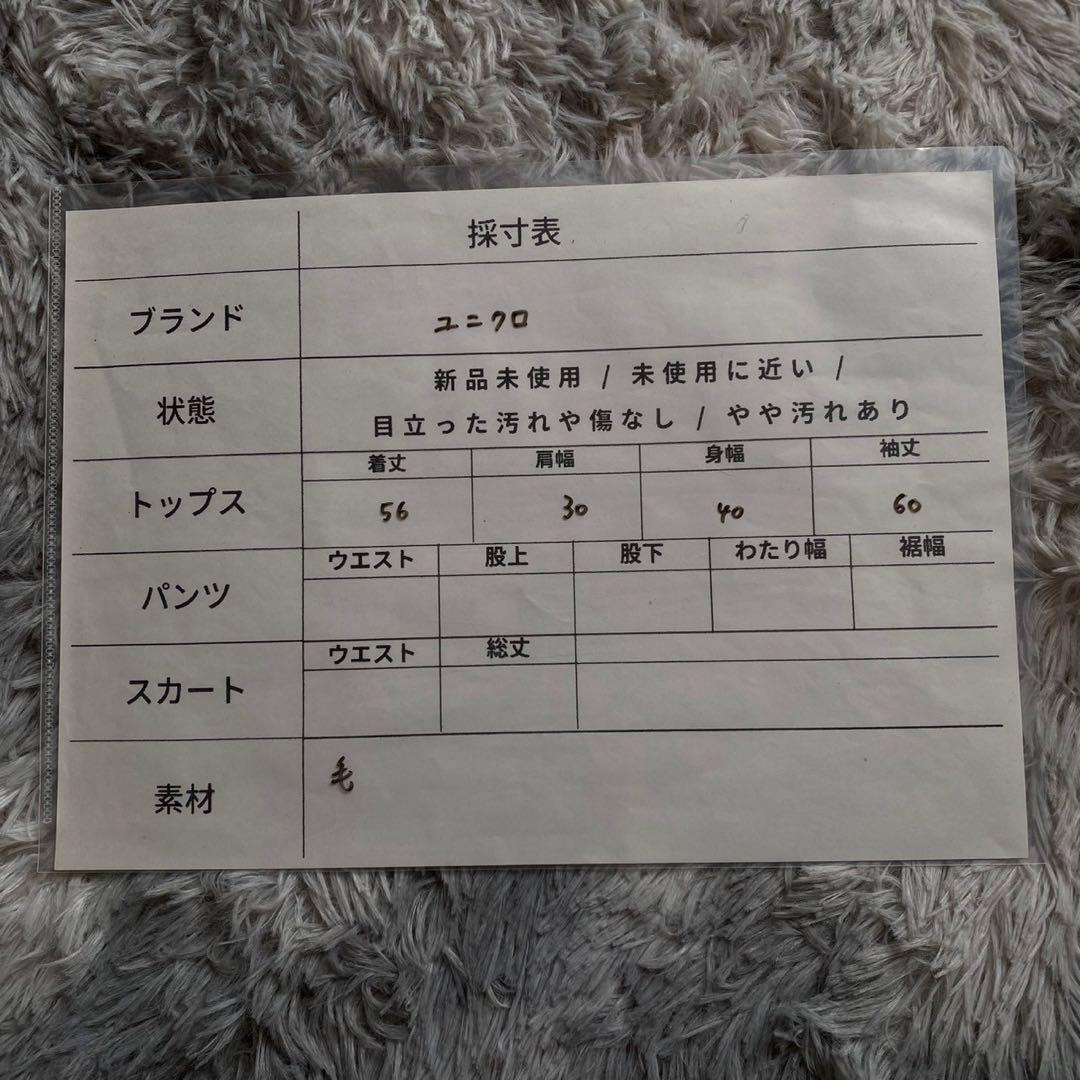 採寸表
ブランド ユニクロ
状態 新品未使用 / 未使用に近い /
目立った汚れや傷なし / やや汚れあり
トップス 着丈 肩幅 身幅 袖丈
56 30 40 60
パンツ ウエスト 股上 股下 わたり幅 裾幅
スカート ウエスト 総丈
素材 毛